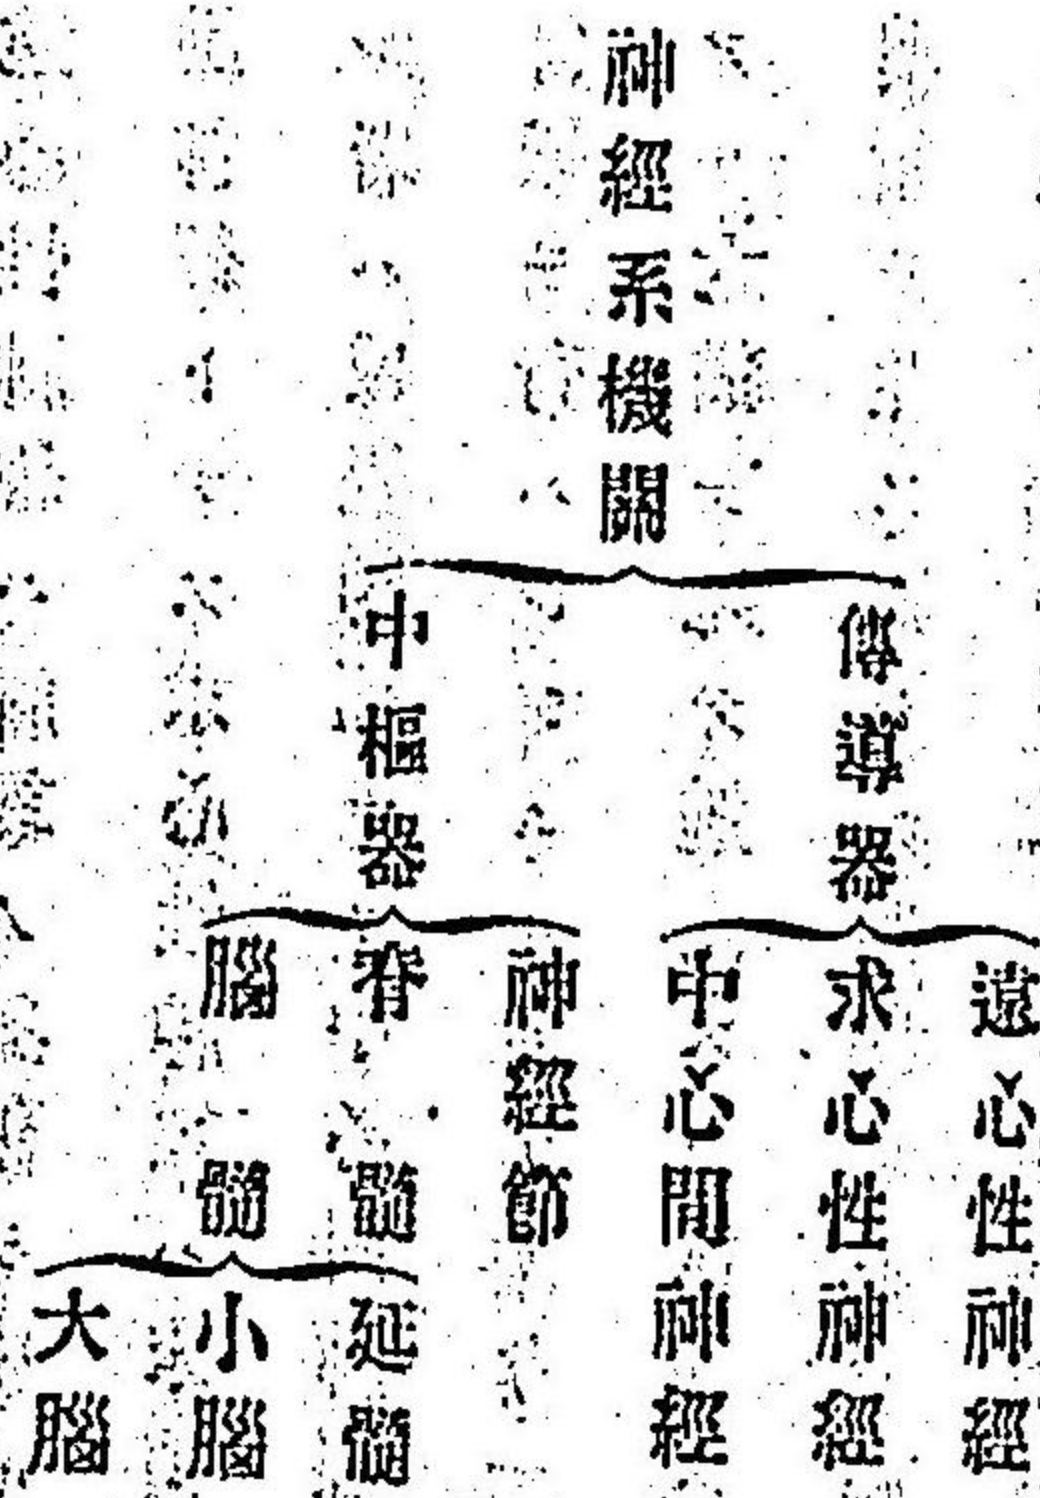 神經系機關
傳導器
遠心性神經
求心性神經
中心間神經
中樞器
神經節
脊髓
腦髓
延髓
小腦
大腦